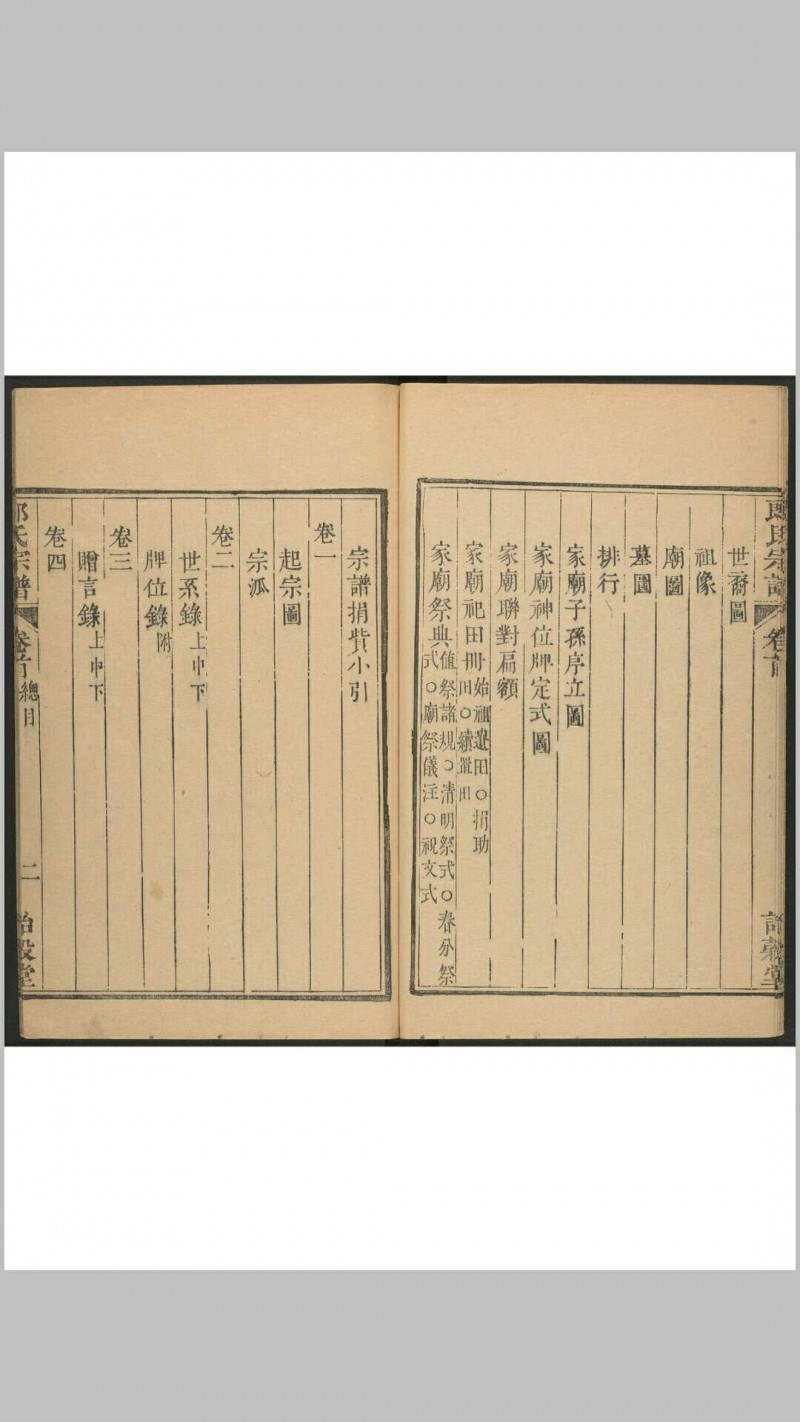 氏宗譜 卷首
世裔圖
祖像
廟圖
墓圖
排行
家廟子孫序立圖
家廟神位牌定式圖
家廟聯對扁額
家廟祀田冊 始祖遺田○捐助田○續置田
家廟祭典 值祭諸規○清明祭式○春分祭式○廟祭儀注○祝文式
宗譜捐貲小引
卷一
起宗圖
宗派
卷二
世系錄 上中下
牌位錄 附
卷三
贈言錄 上中下
卷四
氏宗譜 卷首 總目 二 詒穀堂